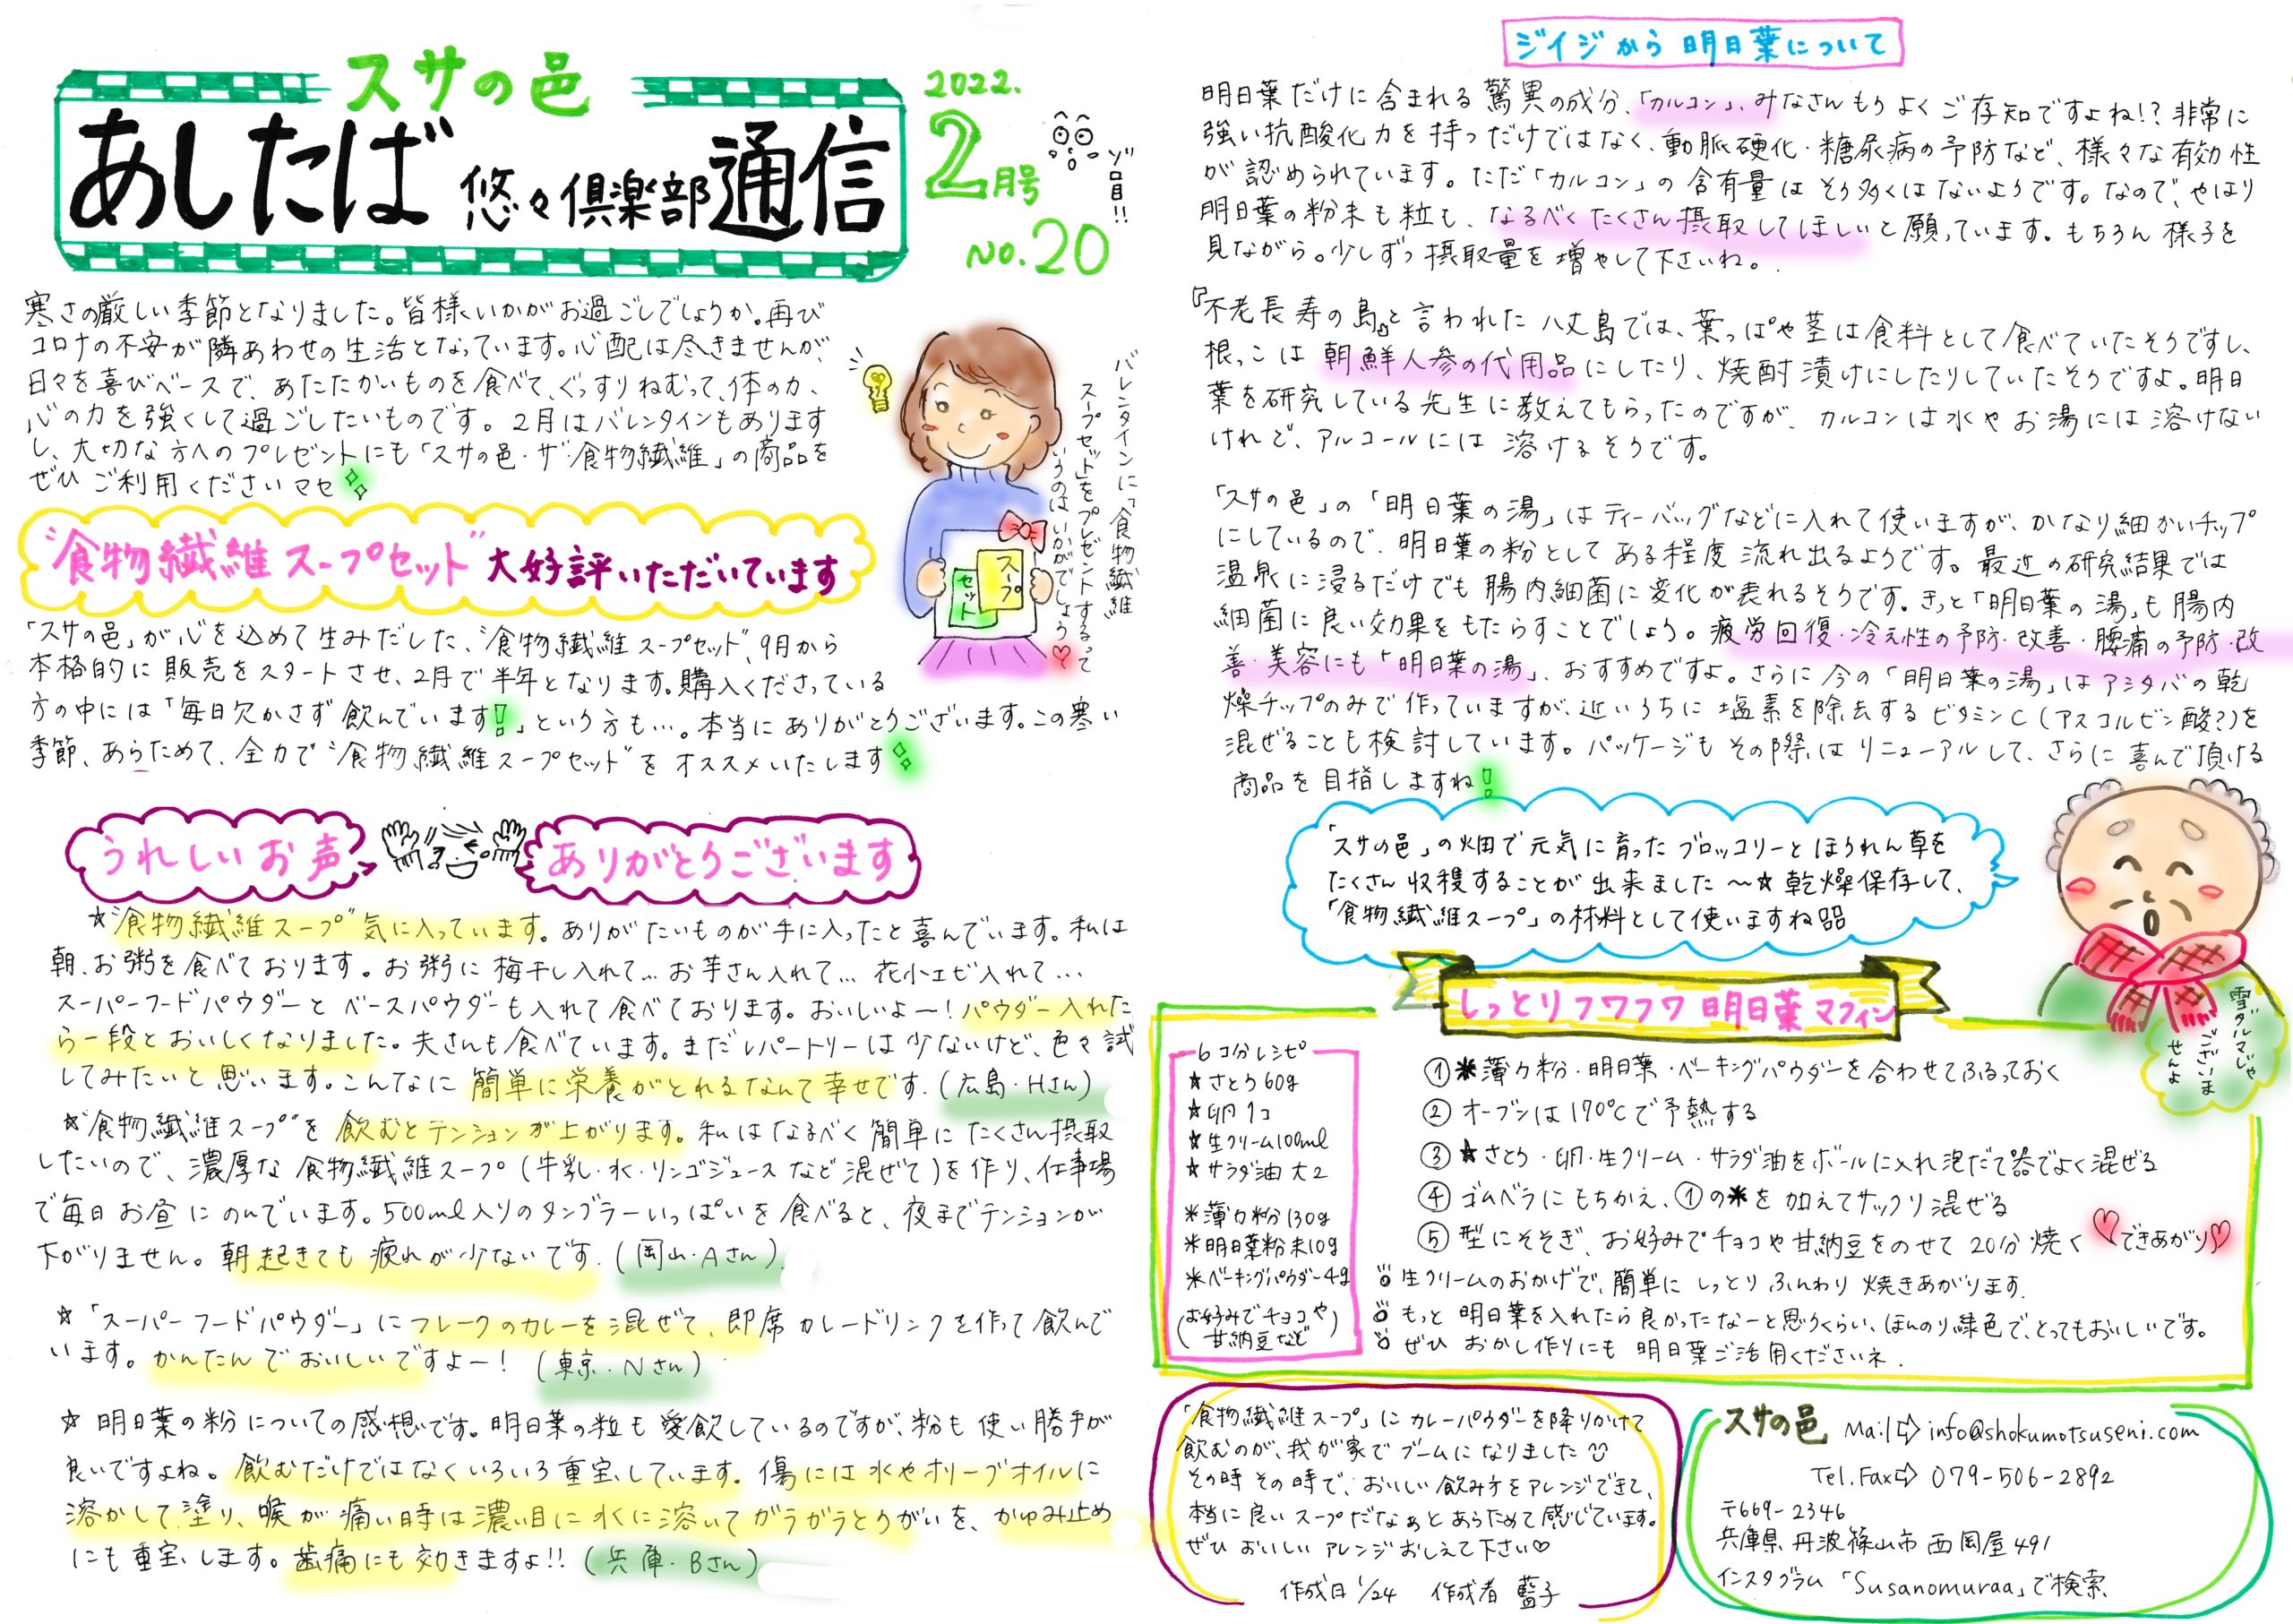 スサの邑
あしたば 悠々倶楽部 通信
2022.
2月号
ゾロ目!!
No.20
寒さの厳しい季節となりました。皆様いかがお過ごしでしょうか。再び
コロナの不安が隣あわせの生活となっています。心配は尽きませんが、
日々を喜びベースで、あたたかいものを食べて、ぐっすりねむって、体の力、
心の力を強くして過ごしたいものです。2月はバレンタインもあります
し、大切な方へのプレゼントにも「スサの邑・ザ・食物繊維」の商品を
ぜひご利用くださいマセ
バレンタインに「食物繊維
スープセット」をプレゼントするって
いうのはいかがでしょう♡
スープ
セット
"食物繊維スープセット" 大好評いただいています
「スサの邑」が心を込めて生みだした、"食物繊維スープセット"、9月から
本格的に販売をスタートさせ、2月で半年となります。購入くださっている
方の中には「毎日欠かさず飲んでいます!」という方も…。本当にありがとうございます。この寒い
季節、あらためて、全力で"食物繊維スープセット"をオススメいたします
うれしいお声
ありがとうございます
☆"食物繊維スープ"気に入っています。ありがたいものが手に入ったと喜んでいます。私は
朝、お粥を食べております。お粥に梅干し入れて…お芋さん入れて…花小エビ入れて…
スーパーフードパウダーとベースパウダーも入れて食べております。おいしいよー!パウダー入れた
ら一段とおいしくなりました。夫さんも食べています。まだレパートリーは少ないけど、色々試
してみたいと思います。こんなに簡単に栄養がとれるなんて幸せです。(広島・Hさん)
☆"食物繊維スープ"を飲むとテンションが上がります。私はなるべく簡単にたくさん摂取
したいので、濃厚な食物繊維スープ(牛乳・水・リンゴジュースなど混ぜて)を作り、仕事場
で毎日お昼にのんでいます。500ml入りのタンブラーいっぱいを食べると、夜までテンションが
下がりません。朝起きても疲れが少ないです。(岡山・Aさん)
☆「スーパーフードパウダー」にフレークのカレーを混ぜて、即席カレードリンクを作って飲んで
います。かんたんでおいしいですよー!(東京・Nさん)
☆明日葉の粉についての感想です。明日葉の粒も愛飲しているのですが、粉も使い勝手が
良いですよね。飲むだけではなくいろいろ重宝しています。傷には水やオリーブオイルに
溶かして塗り、喉が痛い時は濃い目に水に溶いてガラガラとうがいを、かゆみ止め
にも重宝します。歯痛にも効きますよ!!(兵庫・Bさん)
ジイジから 明日葉について
明日葉だけに含まれる驚異の成分、「カルコン」、みなさんもうよくご存知ですよね!?非常に
強い抗酸化力を持つだけではなく、動脈硬化・糖尿病の予防など、様々な有効性
が認められています。ただ「カルコン」の含有量はそう多くはないようです。なので、やはり
明日葉の粉末も粒も、なるべくたくさん摂取してほしいと願っています。もちろん様子を
見ながら。少しずつ摂取量を増やして下さいね。
『不老長寿の島』と言われた八丈島では、葉っぱや茎は食料として食べていたそうですし、
根っこは朝鮮人参の代用品にしたり、焼酎漬けにしたりしていたそうですよ。明日
葉を研究している先生に教えてもらったのですが、カルコンは水やお湯には溶けない
けれど、アルコールには溶けるそうです。
「スサの邑」の「明日葉の湯」はティーバッグなどに入れて使いますが、かなり細かいチップ
にしているので、明日葉の粉としてある程度流れ出るようです。最近の研究結果では
温泉に浸るだけでも腸内細菌に変化が表れるそうです。きっと「明日葉の湯」も腸内
細菌に良い効果をもたらすことでしょう。疲労回復・冷え性の予防・改善・腰痛の予防・改
善・美容にも「明日葉の湯」、おすすめですよ。さらに今の「明日葉の湯」はアシタバの乾
燥チップのみで作っていますが、近いうちに塩素を除去するビタミンC(アスコルビン酸?)を
混ぜることも検討しています。パッケージもその際はリニューアルして、さらに喜んで頂ける
商品を目指しますね!
「スサの邑」の畑で元気に育ったブロッコリーとほうれん草を
たくさん収穫することが出来ました〜☆乾燥保存して、
「食物繊維スープ」の材料として使いますね
雪ダルマじゃ
ございま
せんよ
しっとりフワフワ明日葉マフィン
6コ分レシピ
★さとう60g
★卵1コ
★生クリーム100ml
★サラダ油大2
*薄力粉130g
*明日葉粉末10g
*ベーキングパウダー4g
(お好みでチョコや
甘納豆など)
①*薄力粉・明日葉・ベーキングパウダーを合わせてふるっておく
②オーブンは170℃で予熱する
③★さとう・卵・生クリーム・サラダ油をボールに入れ泡だて器でよく混ぜる
④ゴムベラにもちかえ、①の*を加えてサックリ混ぜる
⑤型にそそぎ、お好みでチョコや甘納豆をのせて20分焼く ♡できあがり♡
生クリームのおかげで、簡単にしっとりふんわり焼きあがります。
もっと明日葉を入れたら良かったなーと思うくらい、ほんのり緑色で、とってもおいしいです。
ぜひおかし作りにも明日葉ご活用くださいネ.
「食物繊維スープ」にカレーパウダーを降りかけて
飲むのが、我が家でブームになりました
その時その時で、おいしい飲み方をアレンジできて、
本当に良いスープだなぁとあらためて感じています。
ぜひおいしいアレンジおしえて下さい♡
作成日1/24 作成者 藍子
スサの邑 Mail⇨info@shokumotsuseni.com
Tel.Fax⇨079-506-2892
〒669-2346
兵庫県丹波篠山市西岡屋491
インスタグラム「Susanomuraa」で検索